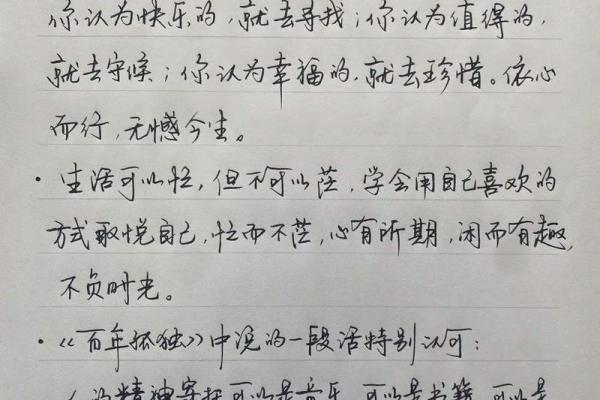 你认为快乐的，就去寻找；你认为值得的，
就去守候；你认为幸福的，就去珍惜。依心
而行，无憾今生。
· 生活可以忙，但不可以茫，学会用自己喜欢的
方式取悦自己，忙而不茫，心有所期，闲而有趣，
不负时光。
·《百年孤独》中说的一段话特别认可：
《的精神寄托可以是音乐，可以是书籍，可以是